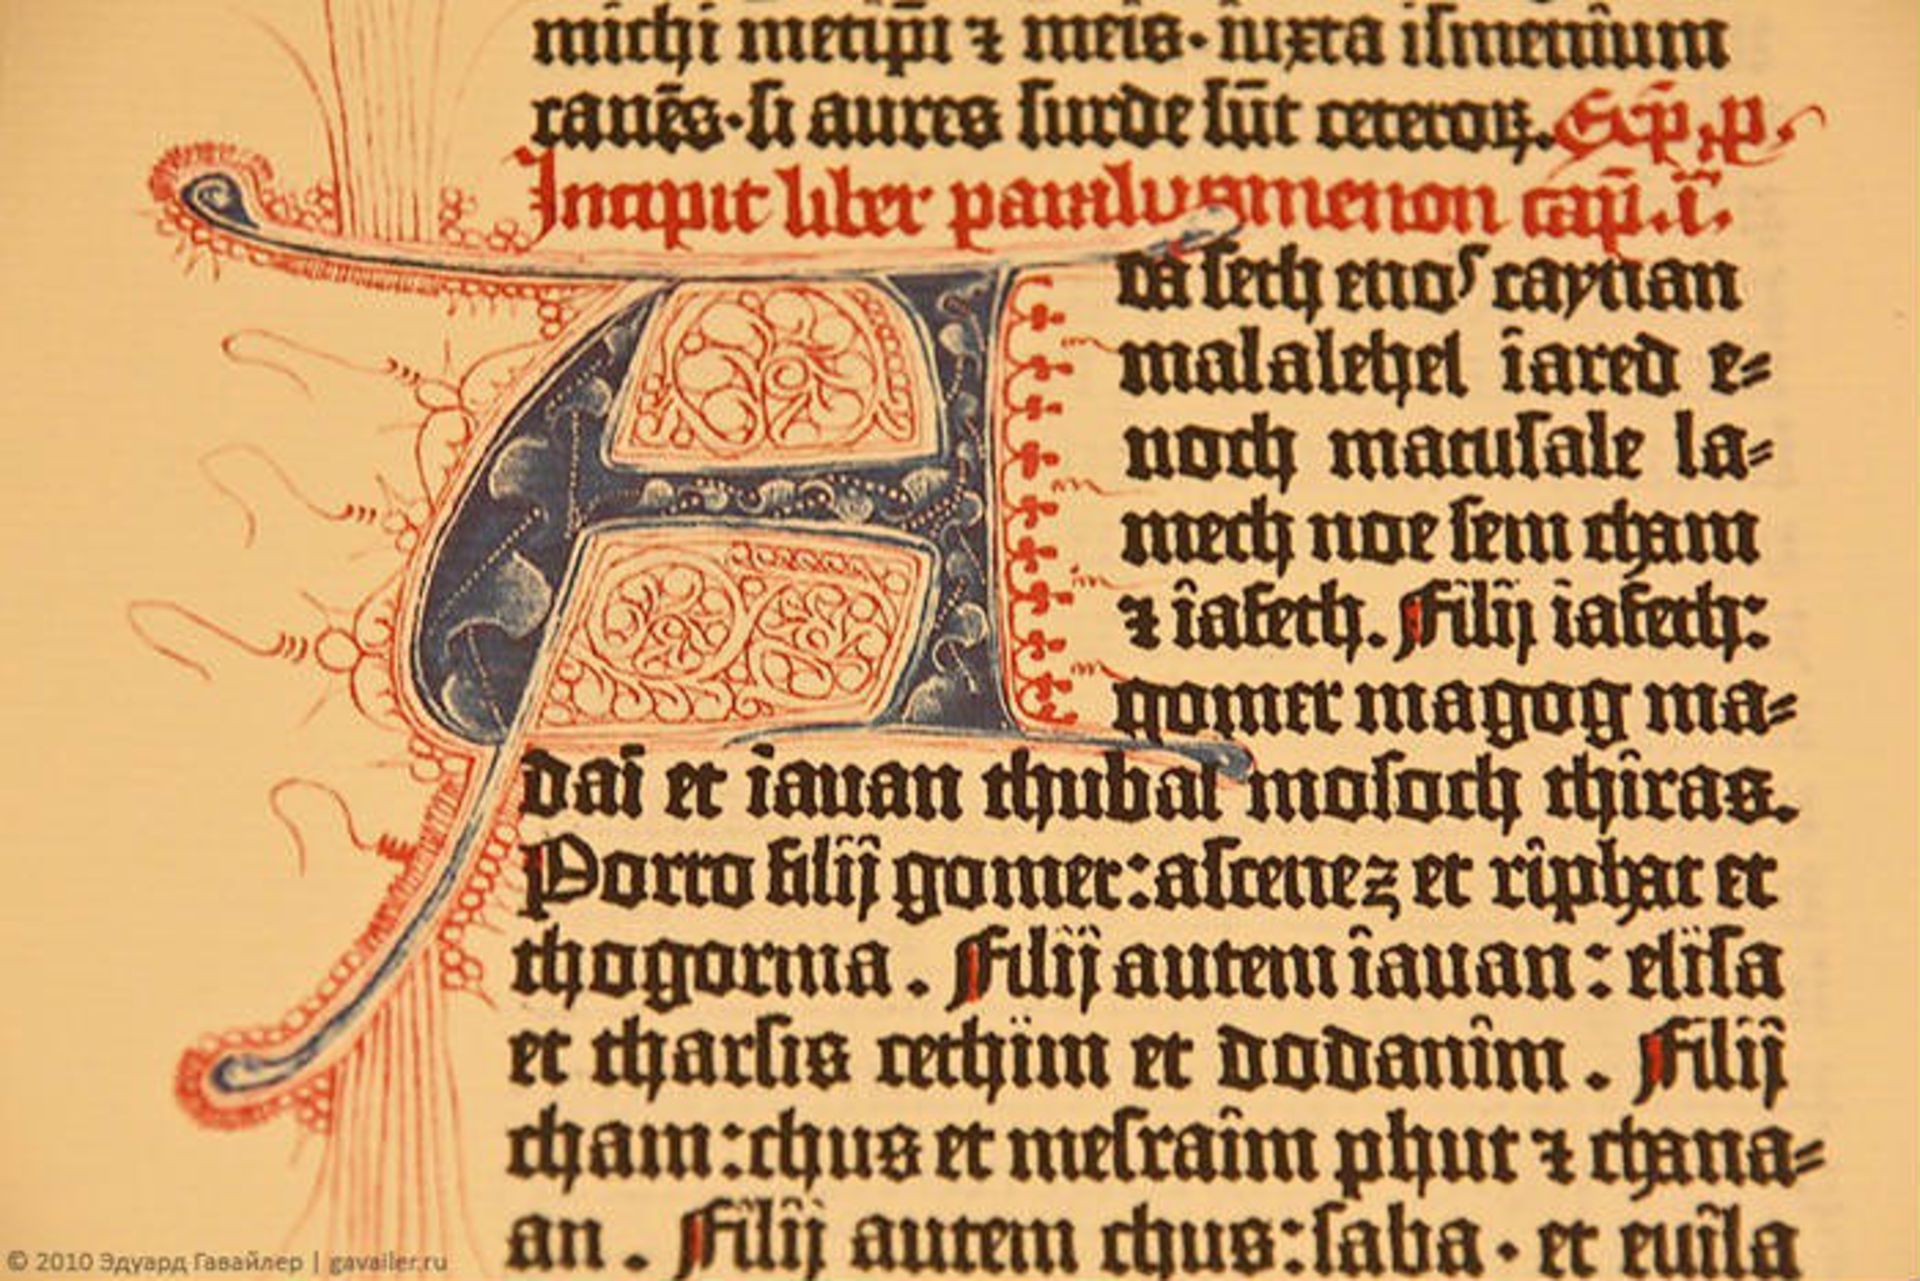 michi metip̄i ⁊ meis·iuxta ismeniium
canēs·si aures surde sūt ceteroꝝ. Exp̄.p.
Incipit liber paralypomenon cap̄.i.
A
dā seth enos caynan
malalehel iared e-
noch matusale la-
mech noe sem cham
⁊ iafeth. Filij iafeth:
gomer magog ma-
dai et iauan thubal mosoch thiras.
Porro filij gomer:ascenez et riphat et
thogorma. Filij autem iauan: elisa
et tharsis cethim et dodanim. Filij
cham:chus et mesraim phut ⁊ chana-
an. Filij autem chus:saba·et euila
© 2010 Эдуард Гавайлер | gavailer.ru